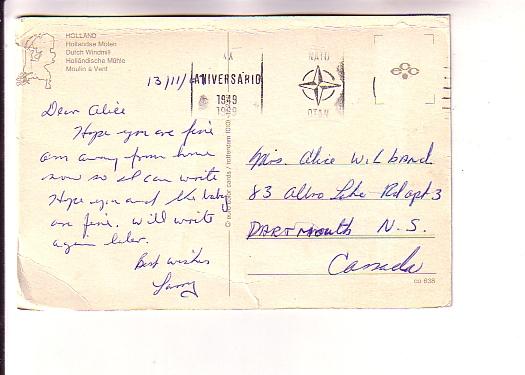 HOLLAND
Hollandse Molen
Dutch Windmill
Holländische Mühle
Moulin à Vent
13/11/
XX
ANIVERSÁRIO
1949
1969
NATO
OTAN
Dear Alice
Hope you are fine
am away from home
now so I can write
Hope you and the baby
are fine. will write
again later.
Best wishes
Larry
color cards / rotterdam
Mrs. Alice Wilband
83 Albro Lake Rd apt 3
DARTMOUTH N.S.
Canada
co 638